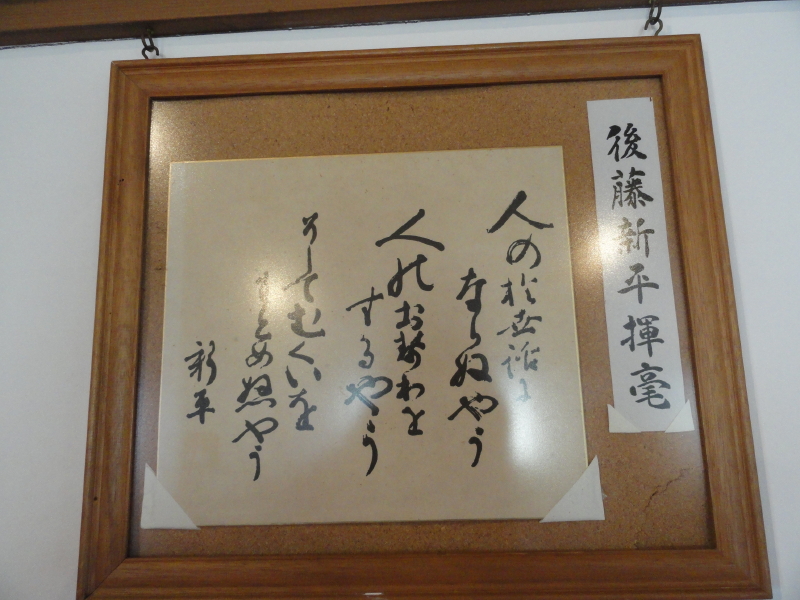 後藤新平揮毫
人の於世話に
ならぬやう
人のお世わを
するやう
そしてむくいを
もとめぬやう
新平